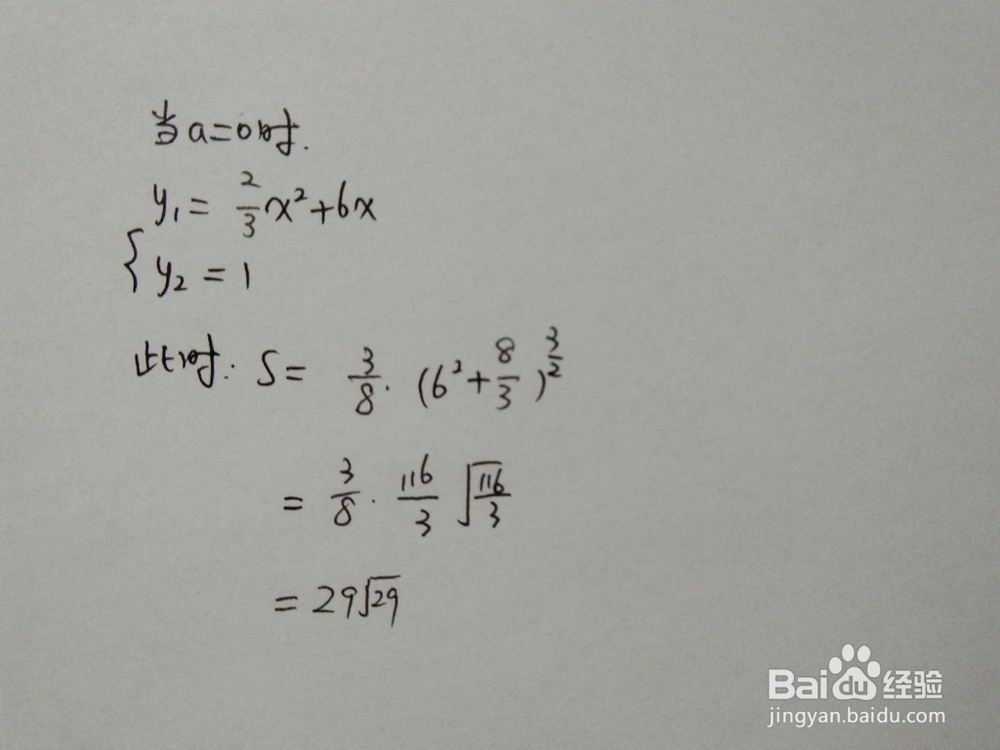 当a=0时.
y₁= 2/3 x²+6x
{ y₂=1
此时: S= 3/8 · (6²+8/3)^(3/2)
= 3/8 · 116/3 √(116/3)
= 29√29
Baidu 经验
jingyan.baidu.com